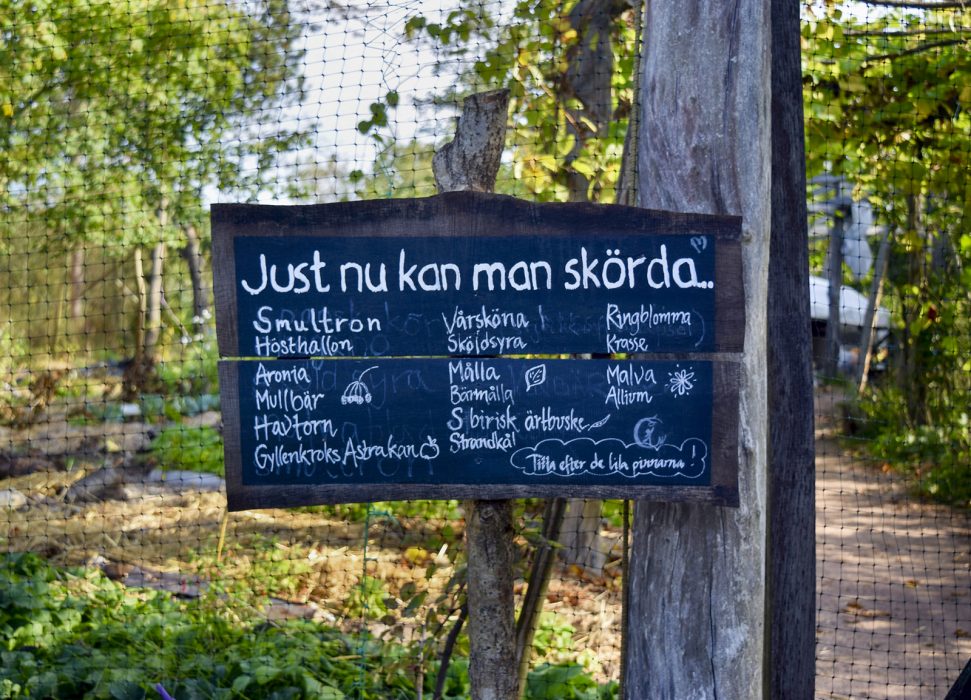 Just nu kan man skörda...
Smultron
Hösthallon
Aronia
Mullbär
Havtorn
Gyllenkroks Astrakan
Vårsköna
Skojdsyra
Målla
Bärmålla
Sibirisk ärtbuske
Strandkål
Ringblomma
Krasse
Malva
Allium
Titta efter de lila pinnarna!